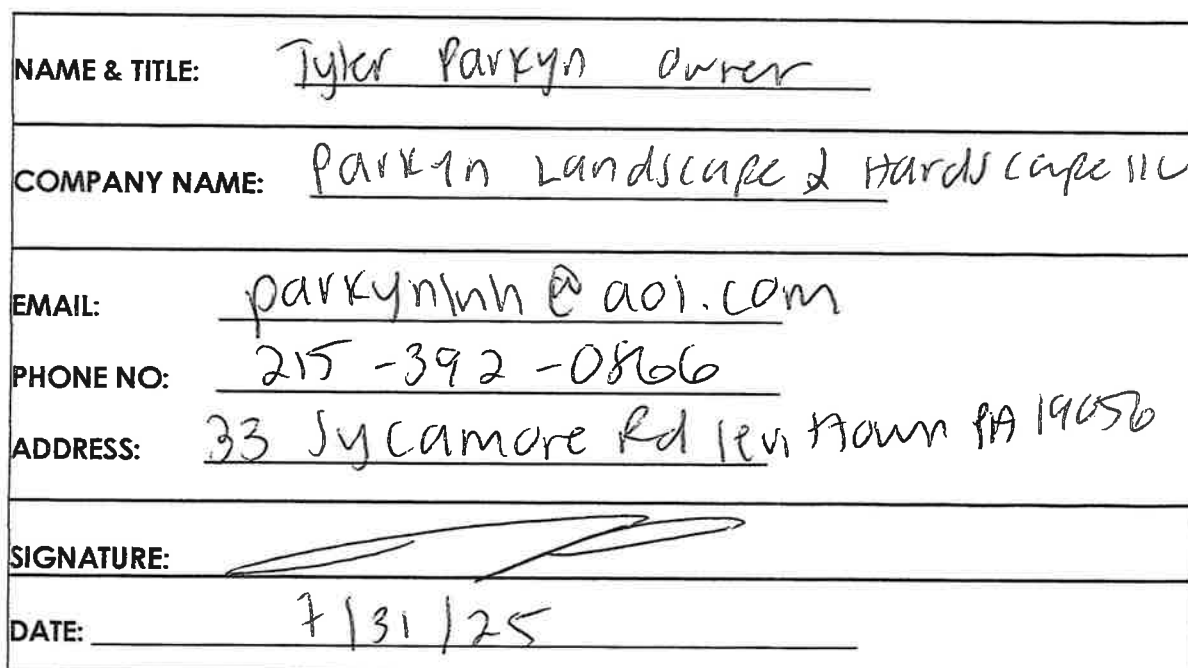 NAME & TITLE: Tyler Parkyn Owner
COMPANY NAME: Parkyn Landscape & Hardscape llc
EMAIL: parkynlnh@aol.com
PHONE NO: 215-392-0866
ADDRESS: 33 Sycamore Rd levittown PA 19056
SIGNATURE:
DATE: 7/31/25